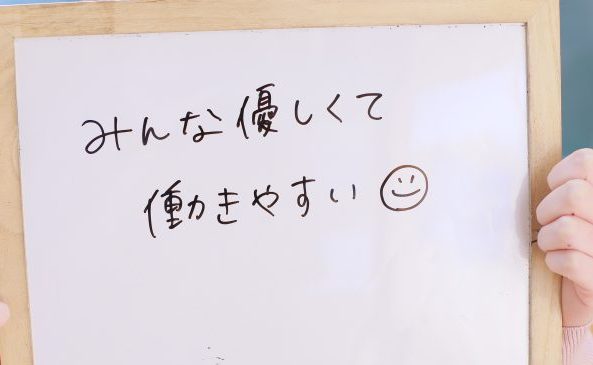 みんな優しくて
働きやすい